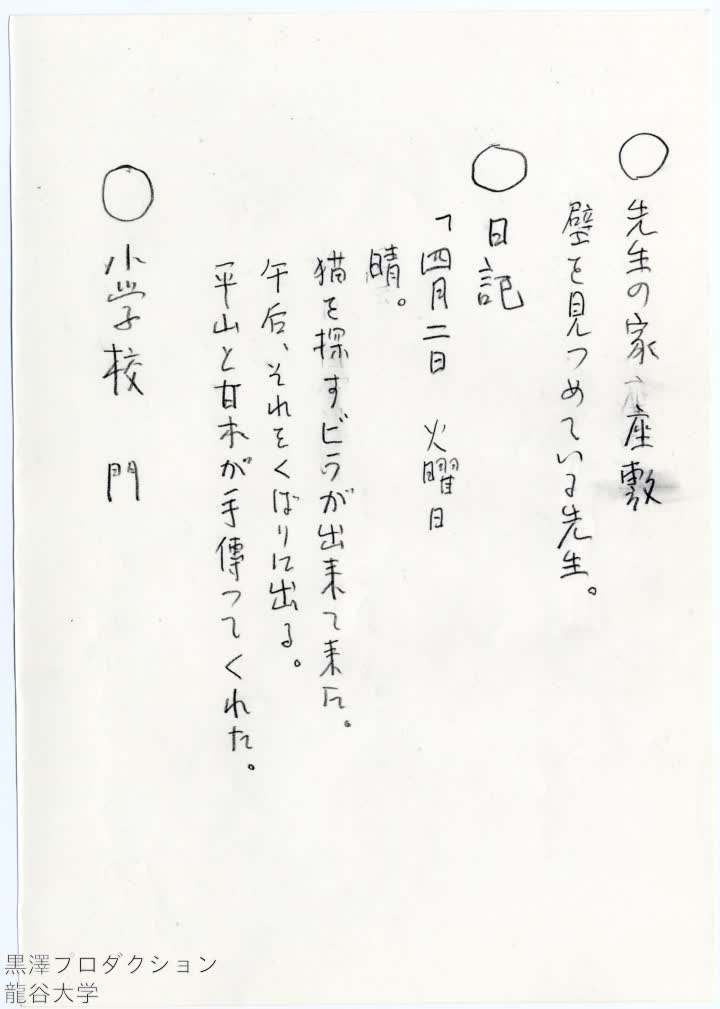 ○ 先生の家 座敷
壁を見つめている先生。
○ 日記
「四月二日 火曜日
晴。
猫を探すビラが出来て来た。
午后、それをくばりに出る。
平山と甘木が手傳つてくれた。
○ 小学校 門
黒澤プロダクション
龍谷大学